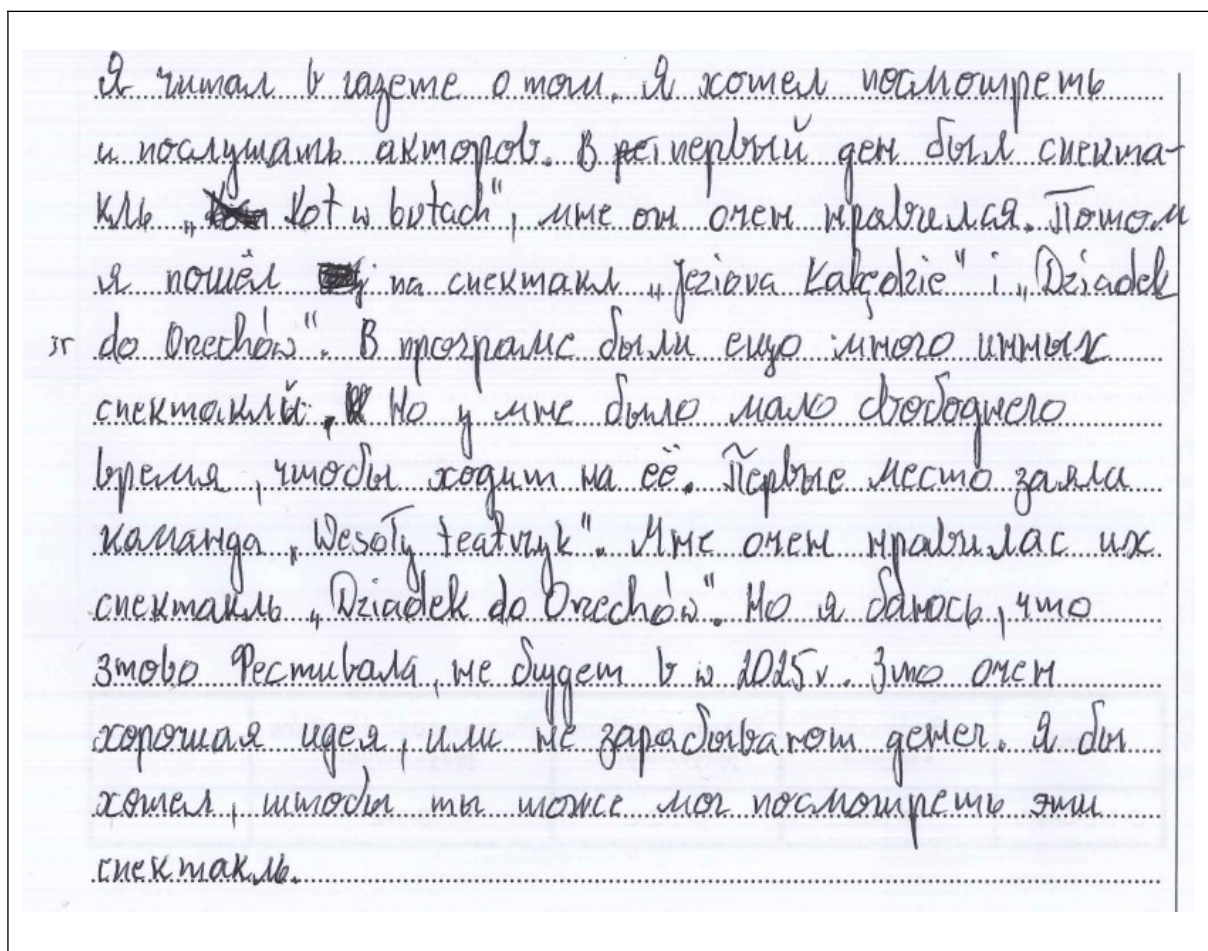 Я читал в газете о том. Я хотел посмотреть
и послушать акторов. В первый ден был спекта-
кль „Kot w butach", мне он очен нравился. Потом
я пошёл на спектакл „Jeziora Łabędzie" i „Dziadek
do Orzechów". В програме были ещо много инных
спектаклй. Но у мне было мало свободнего
время, чтобы ходит на её. Первые место заяла
каманда „Wesoły teatrzyk". Мне очен нравилас их
спектакль „Dziadek do Orzechów". Но я баюсь, что
этово Фестивала, не будет в w 2025 r. Это очен
хорошая идея, или не зарабывают денег. Я бы
хотел, штобы ты тоже мог посмотреть эти
спектакль.